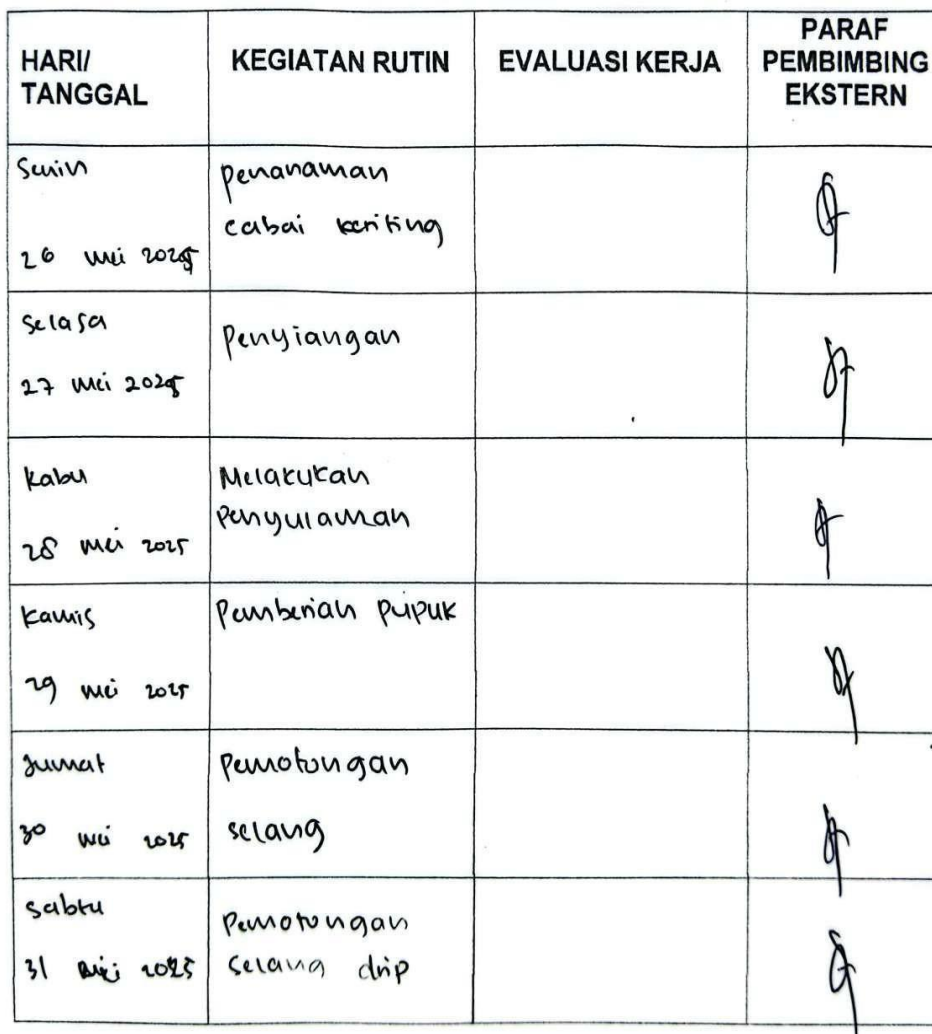 HARI/
TANGGAL
KEGIATAN RUTIN
EVALUASI KERJA
PARAF
PEMBIMBING
EKSTERN
Senin
26 Mei 2025
Penanaman
cabai keriting
Selasa
27 Mei 2025
Penyiangan
Rabu
28 Mei 2025
Melakukan
Penyulaman
Kamis
29 Mei 2025
Pemberian Pupuk
Jumat
30 Mei 2025
Pemotongan
selang
Sabtu
31 Mei 2025
Pemotongan
Selang drip